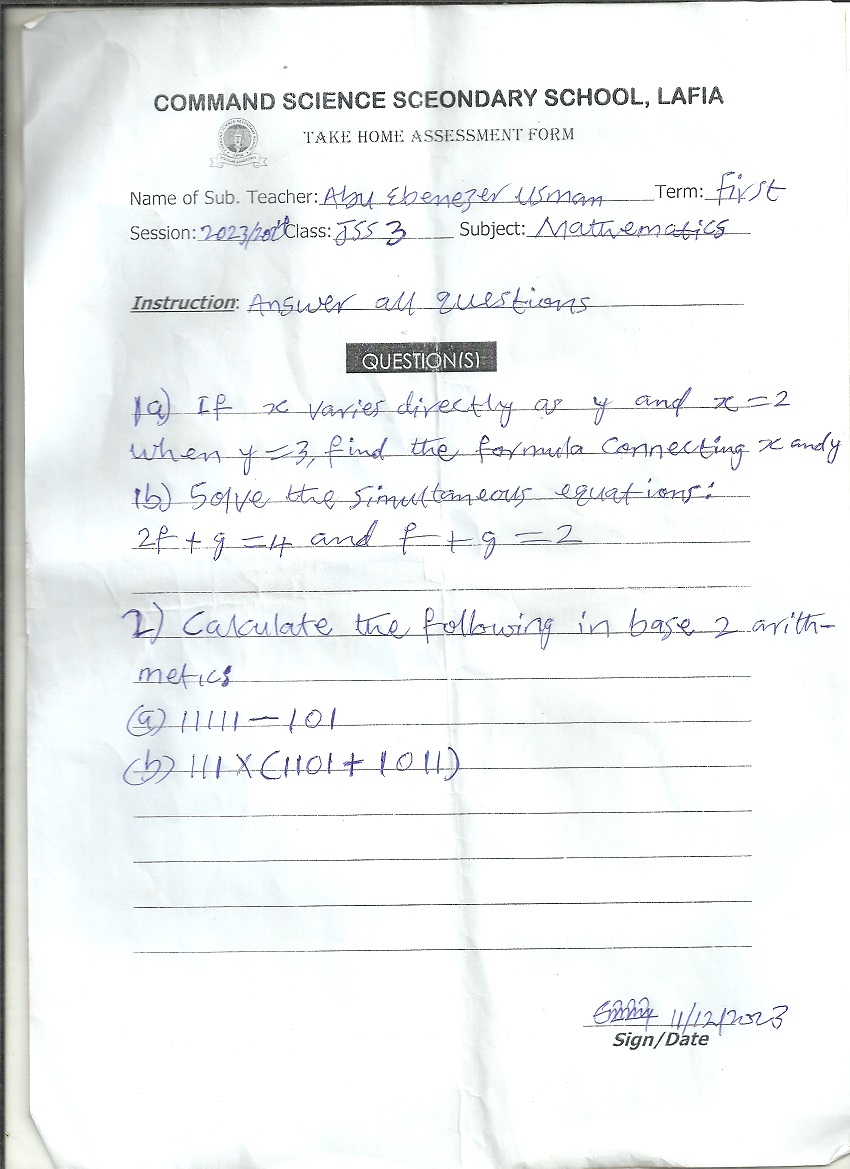 COMMAND SCIENCE SCEONDARY SCHOOL, LAFIA
TAKE HOME ASSESSMENT FORM
Name of Sub. Teacher: Abu Ebenezer Usman Term: first
Session: 2023/2024 Class: JSS 3 Subject: Mathematics
Instruction: Answer all questions
QUESTION(S)
1a) If x varies directly as y and x = 2
when y = 3, find the formula connecting x and y
1b) Solve the simultaneous equations:
2f + g = 4 and f + g = 2
2) Calculate the following in base 2 arith-
metics
(a) 11111 — 101
(b) 111 X (1101 + 1011)
11/12/2023
Sign/Date